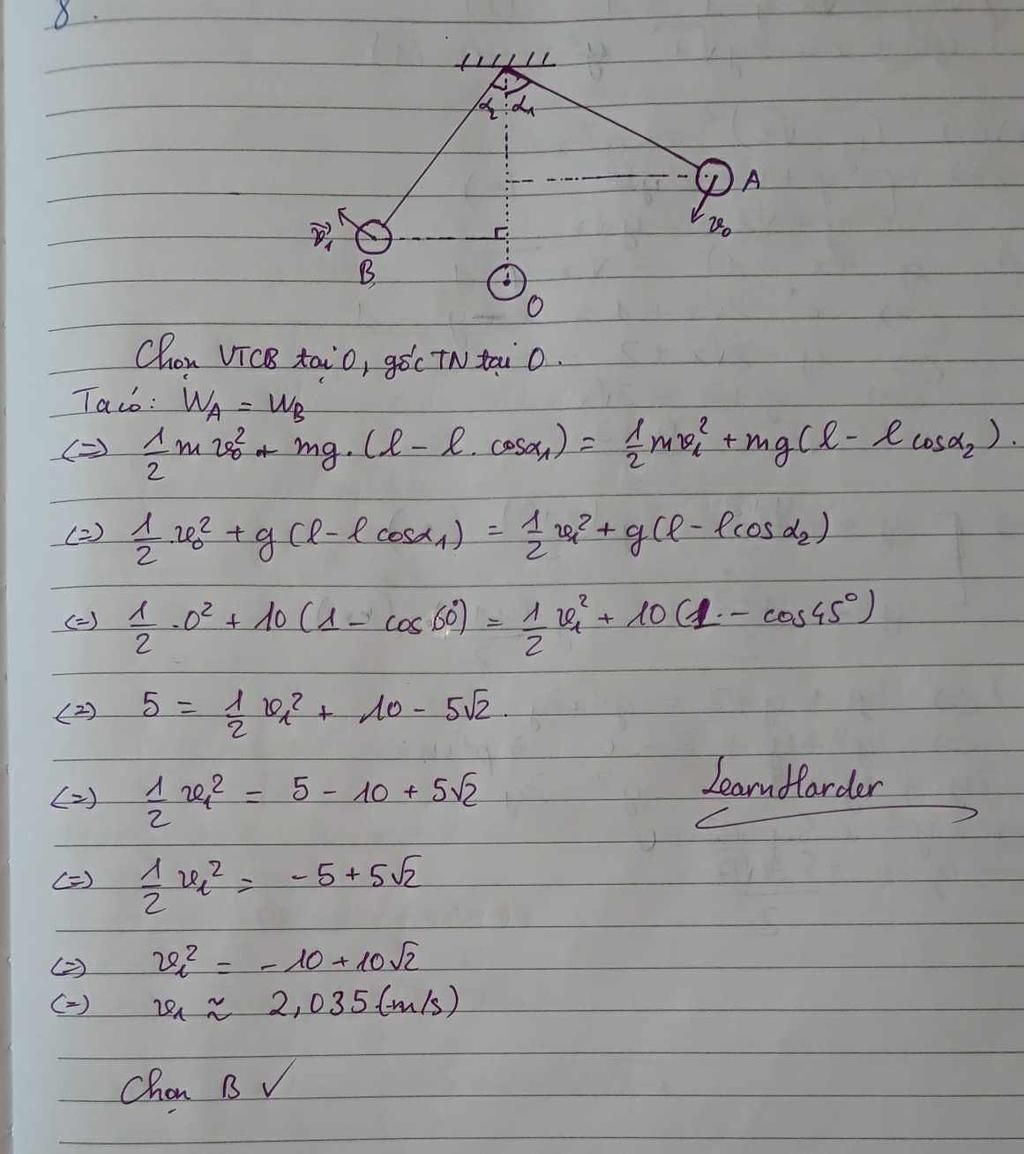 8.
α₂ α₁
A
v₀
v⃗₁
B
O
Chọn VTCB tại O, gốc TN tại O.
Ta có: W_A = W_B
(=) 1/2 m v₀² + mg.(l - l.cosα₁) = 1/2 mv₁² + mg(l - l cosα₂).
(=) 1/2 .v₀² + g(l - l cosα₁) = 1/2 v₁² + g(l - lcosα₂)
(=) 1/2 .0² + 10(1 - cos 60°) = 1/2 v₁² + 10(1. - cos45°)
(=) 5 = 1/2 v₁² + 10 - 5√2.
(=) 1/2 v₁² = 5 - 10 + 5√2
LearnHarder
(=) 1/2 v₁² = -5 + 5√2
(=) v₁² = -10 + 10√2
(=) v₁ ≈ 2,035(m/s)
Chọn B ✓